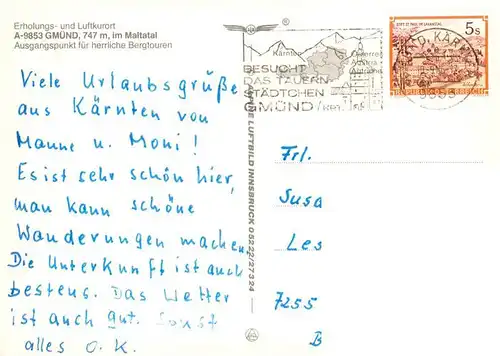 Erholungs- und Luftkurort
A-9853 GMÜND, 747 m, im Maltatal
Ausgangspunkt für herrliche Bergtouren
®
Kärnten
Austria
BESUCHT
DAS TAUERN-
STÄDTCHEN
GMÜND
5s
REPUBLIK ÖSTERREICH
LUFTBILD INNSBRUCK 05222/27324
Viele Urlaubsgrüße
aus Kärnten von
Manne u. Moni!
Es ist sehr schön hier,
man kann schöne
Wanderungen machen.
Die Unterkunft ist auch
bestens. Das Wetter
ist auch gut. Sonst
alles o.K.
Frl.
Susa
Les
7255
B